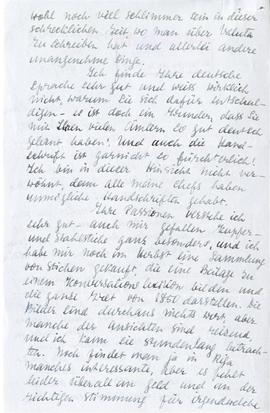 wohl noch viel schlimmer sein in dieser
schrecklichen Zeit wo man über Valuta
zu schreiben hat und allerlei andere
unangenehme Dinge.
Ich finde Ihre deutsche
Sprache sehr gut und weiss wirklich
nicht, warum Sie sich dafür entschul-
digen - es ist doch ein Wunder, dass Sie
mit Ihren vielen Ämtern so gut deutsch
gelernt haben! Und auch die Hand-
schrift ist garnicht so fürchterlich!
Ich bin in dieser Hinsicht nicht ver-
wöhnt, denn alle meine Chefs haben
unmögliche Handschriften gehabt.
Ihre Passionen verstehe ich
sehr gut - auch mir gefallen Kupfer-
und Stahlstiche ganz besonders, und ich
habe mir noch im Herbst eine Sammlung
von Stichen gekauft, die eine Beilage zu
einem Konversations lexikon bilden und
die ganze Welt von 1860 darstellen. Die
Bilder sind durchaus nichts wert, aber
manche der Ansichten sind reizend
und ich kann sie stundenlang betrach-
ten. Noch findet man ja in Riga
manches interessante, aber es fehlt
leider überall an Geld und an der
richtigen Stimmung für irgendwelche